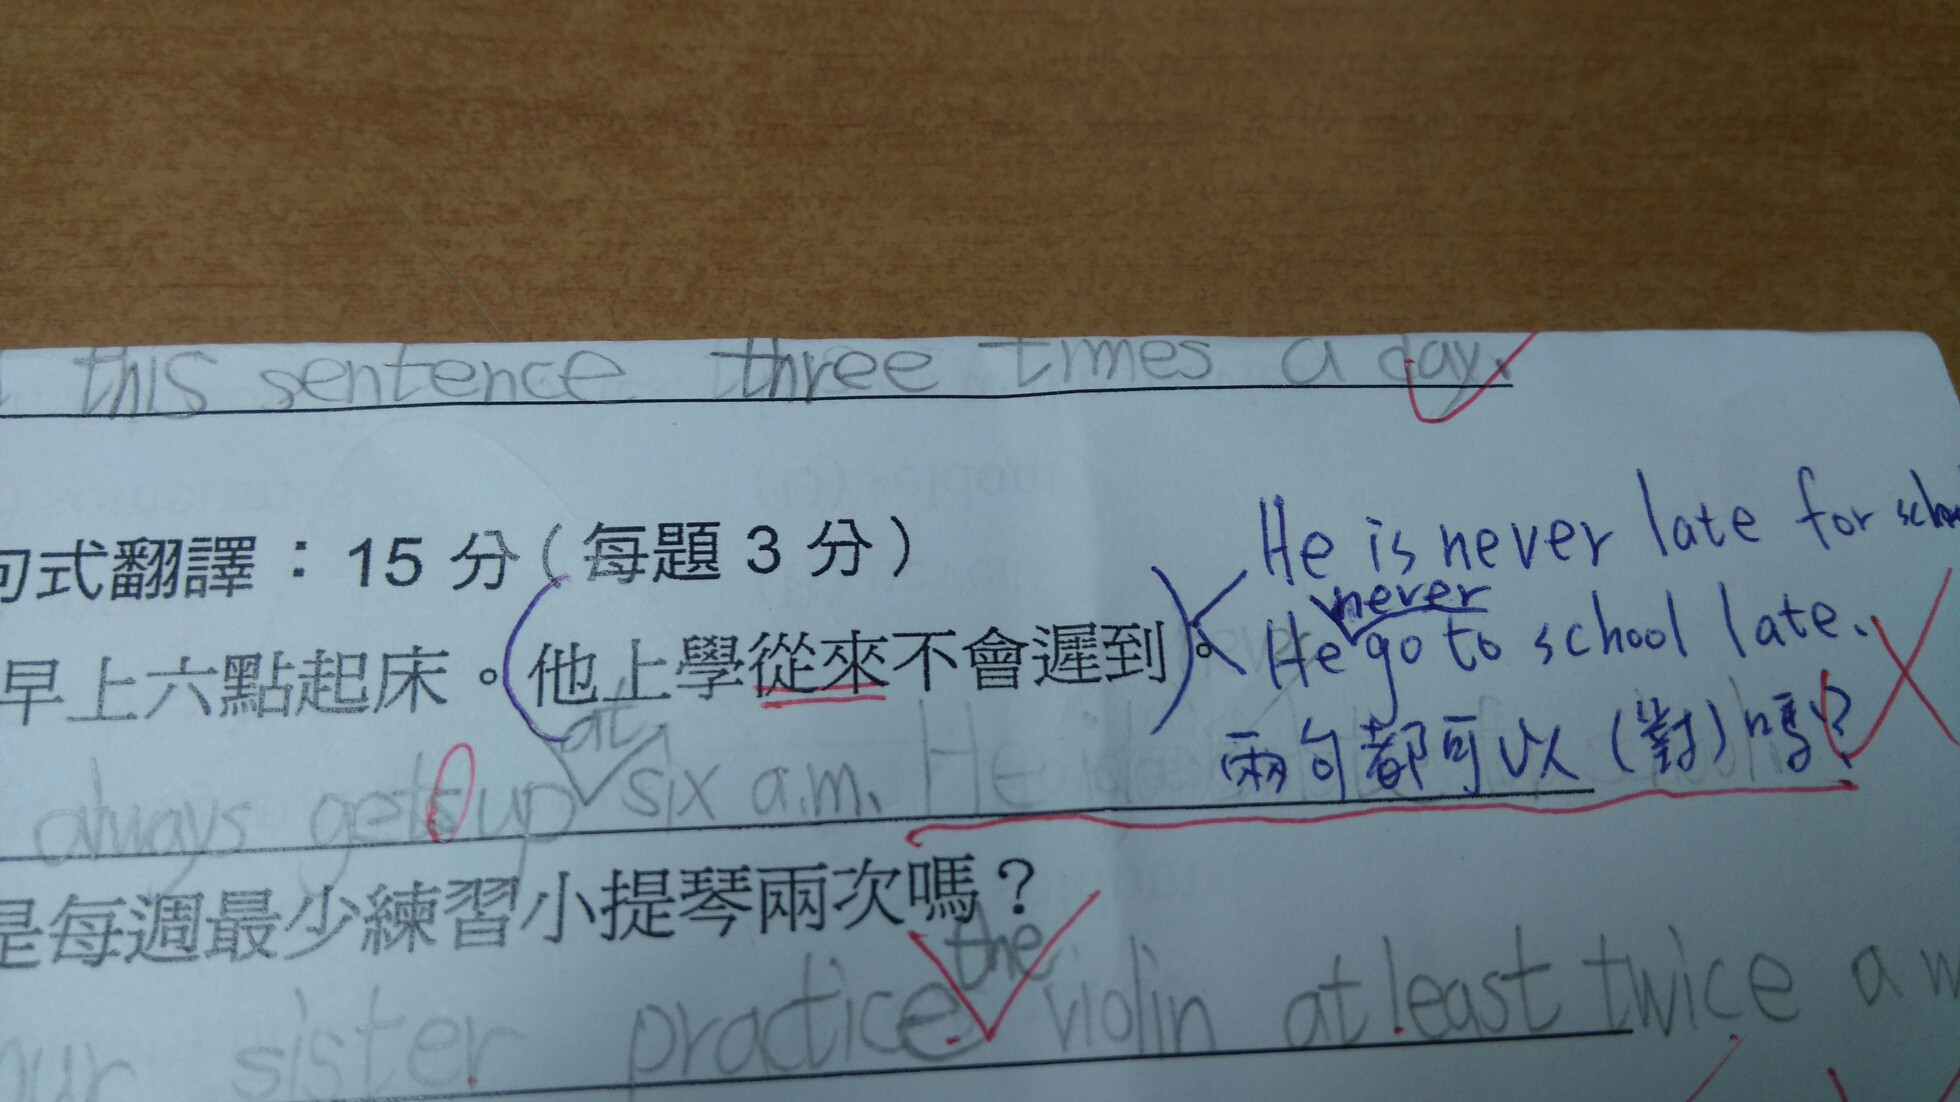 this sentence three times a day.
句式翻譯：15 分（每題 3 分）
He is never late for
never
早上六點起床。他上學從來不會遲到。
He go to school late.
兩句都可以（對）嗎？
at
always gets up six a.m. He
是每週最少練習小提琴兩次嗎？
the
sister practice violin at least twice a